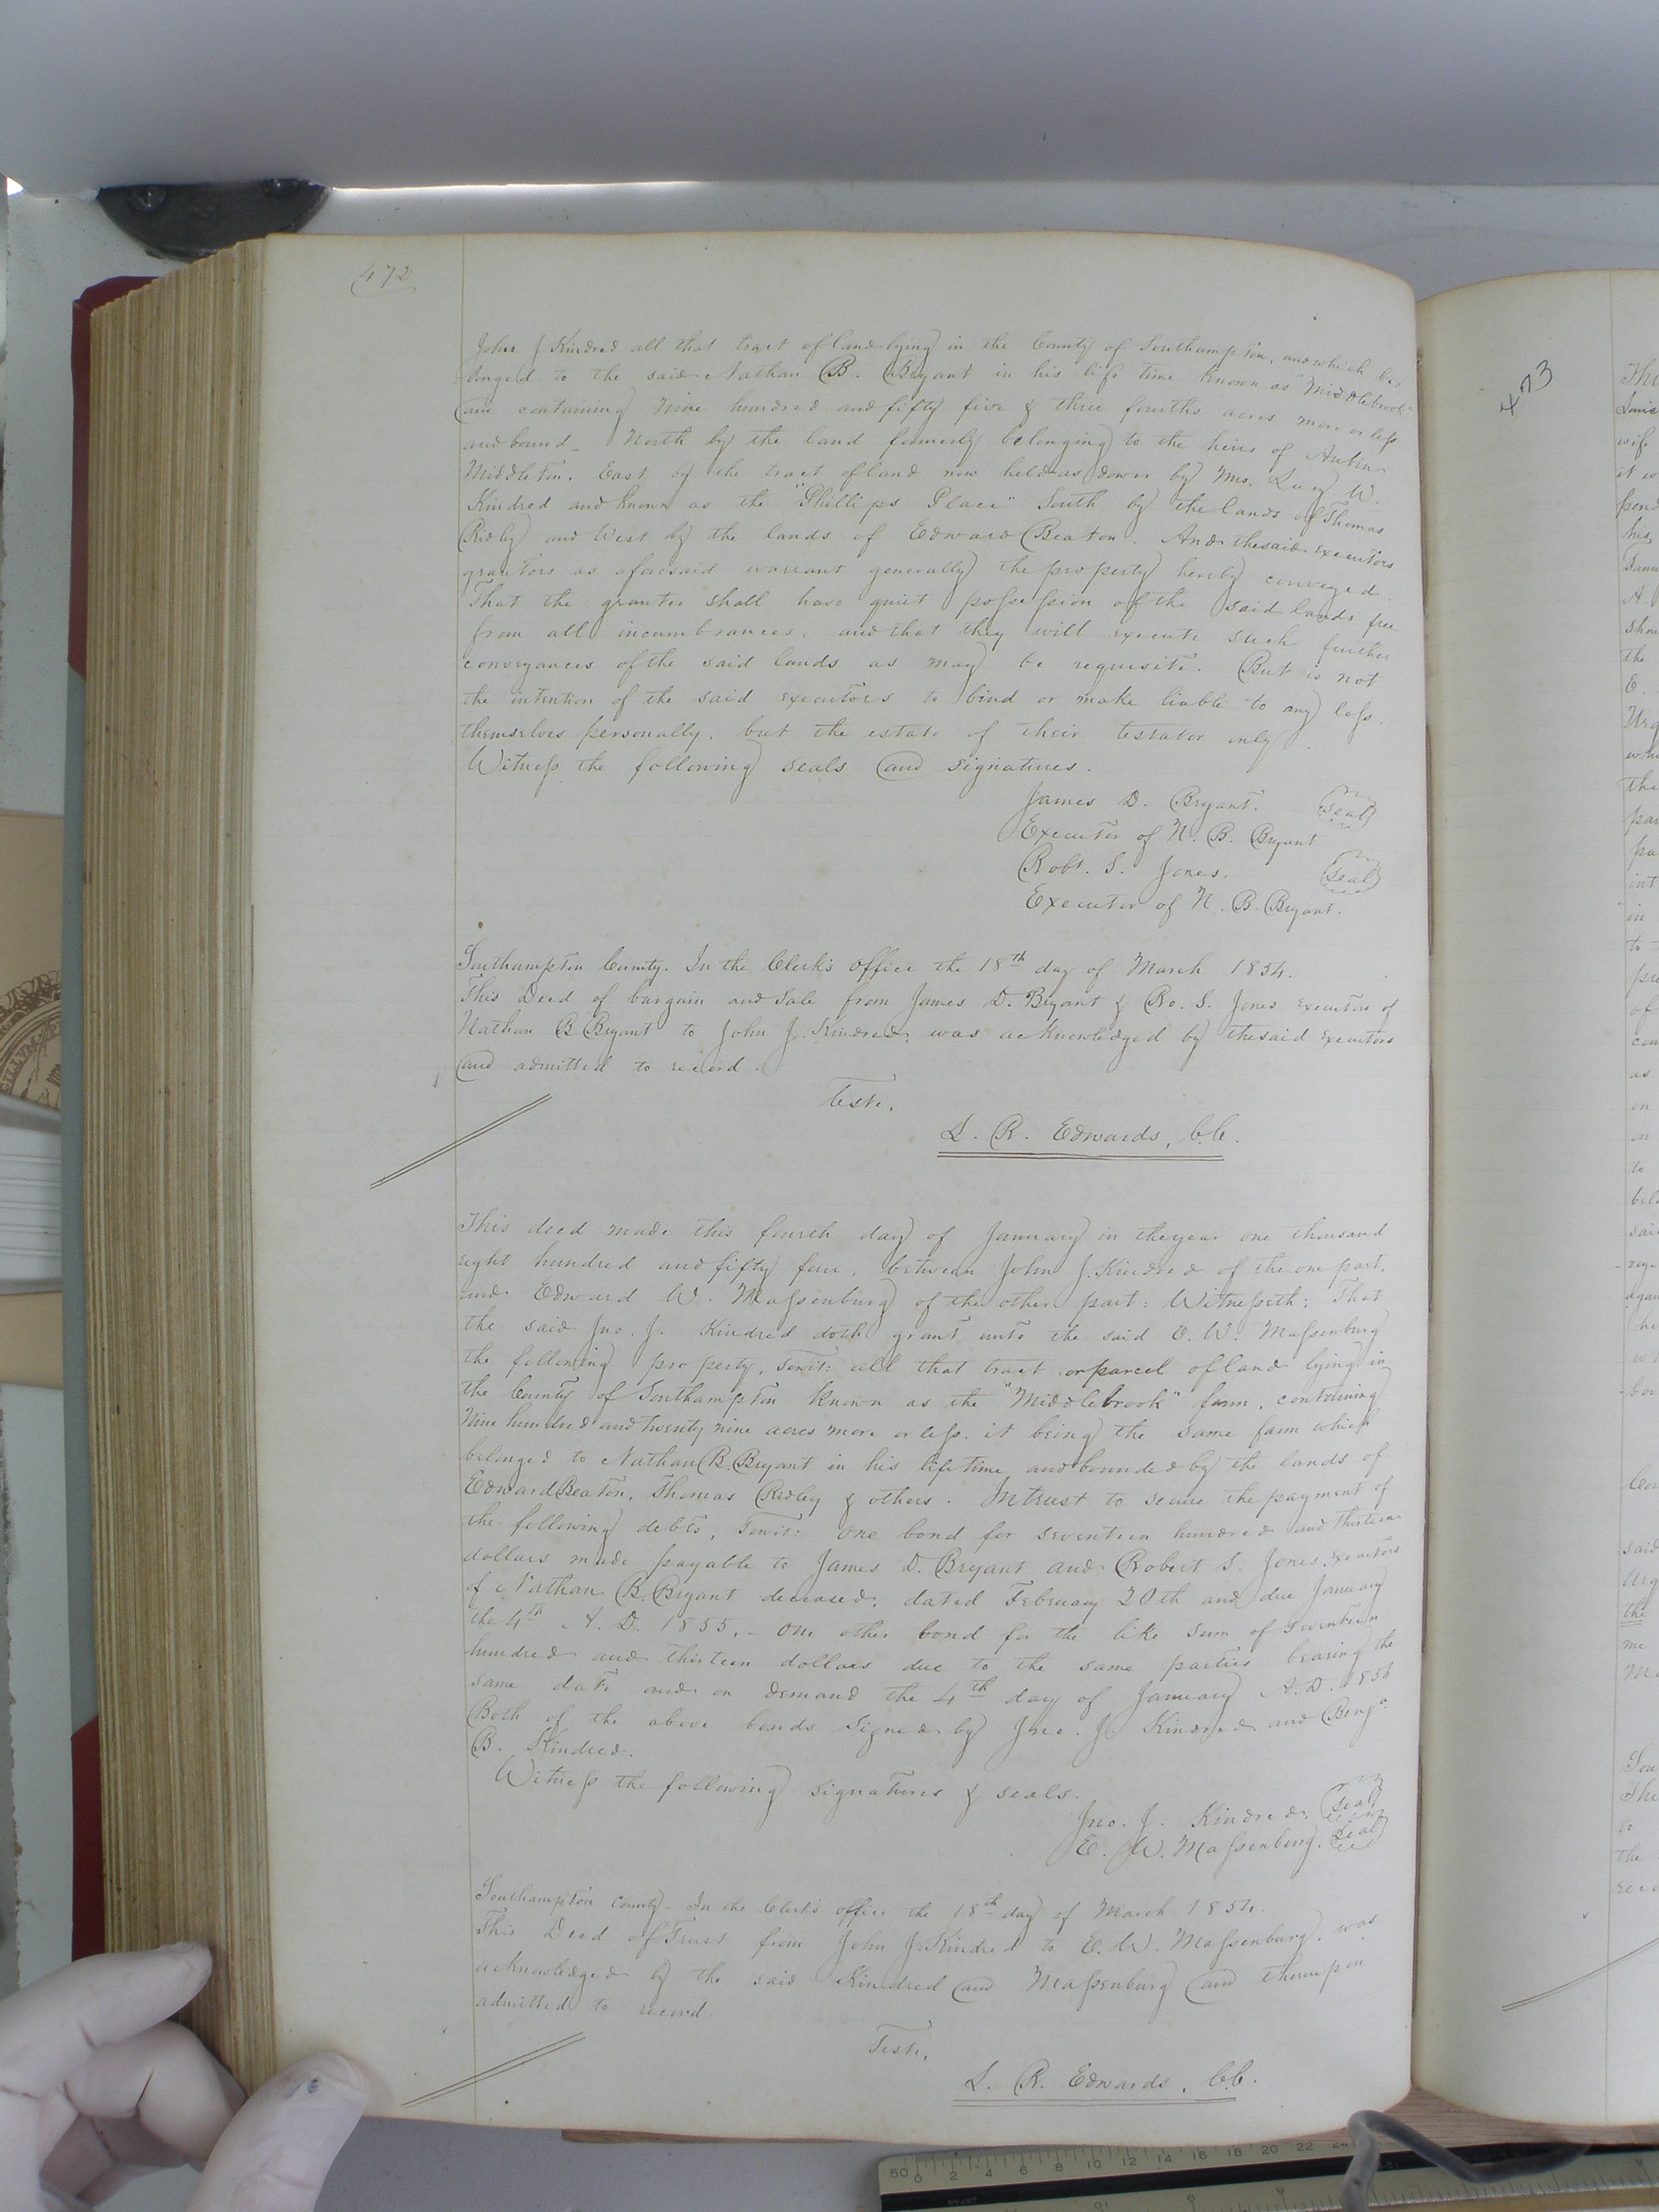 472
John J Kindred all that tract of land lying in the County of Southampton, and which be=
longed to the said Nathan B. Bryant in his life time known as "Middlebrook"
and containing Nine hundred and fifty five & three fourths acres more or less
and bound_ North by the land formerly belonging to the heirs of
Middleton, East by the tract of land now held as dower by Mrs. Lucy W.
Kindred and known as the "Phillips Place" South by the lands of Thomas
Ridley and West by the lands of Edward Beaton. And the said executors
grantors as aforesaid warrant generally the property hereby conveyed.
That the grantee shall have quiet possession of the said lands free
from all incumbrances, and that they will execute such further
conveyances of the said lands as may be requisite. But is not
the intention of the said executors to bind or make liable to any loss
themselves personally, but the estate of their testator only.
Witness the following seals and signatures.
James D. Bryant. Seal
Executor of N. B. Bryant
Robt. S. Jones. Seal
Executor of N. B. Bryant.
Southampton County. In the Clerk's office the 18th day of March 1854.
This Deed of bargain and Sale from James D. Bryant & Ro. S. Jones executors of
Nathan B Bryant to John J. Kindred, was acknowledged by the said executors
and admitted to record.
Teste,
L. R. Edwards, C.C.
This deed made this fourth day of January in the year one thousand
eight hundred and fifty four, between John J. Kindred of the one part,
and Edward W. Massenburg of the other part: Witnesseth: That
the said Jno. J. Kindred doth grant unto the said E. W. Massenburg
the following property, towit: all that tract or parcel of land lying in
the County of Southampton known as the "Middlebrook" farm, containing
Nine hundred and twenty nine acres more or less. it being the same farm which
belonged to Nathan B. Bryant in his life time and bounded by the lands of
Edward Beaton, Thomas Ridley & others. In trust to secure the payment of
the following debts, Towit: one bond for seventeen hundred and thirteen
dollars made payable to James D. Bryant and Robert S. Jones, executors
of Nathan B. Bryant deceased, dated February 20th and due January
the 4th A. D. 1855. - One other bond for the like sum of seventeen
hundred and thirteen dollars due to the same parties bearing the
same date and on demand the 4th day of January A. D. 1856
Both of the above bonds signed by Jno. J. Kindred and Benja.
B. Kindred.
Witness the following signatures & seals.
Jno. J. Kindred. Seal
E. W. Massenburg. Seal
Southampton County. In the Clerk's office the 18th day of March 1854.
This Deed of Trust from John J. Kindred to E. W. Massenburg, was
acknowledged by the said Kindred and Massenburg and thereupon
admitted to record.
Teste,
L. R. Edwards, C.C.
473
50 0 2 4 6 8 10 12 14 16 18 20 22